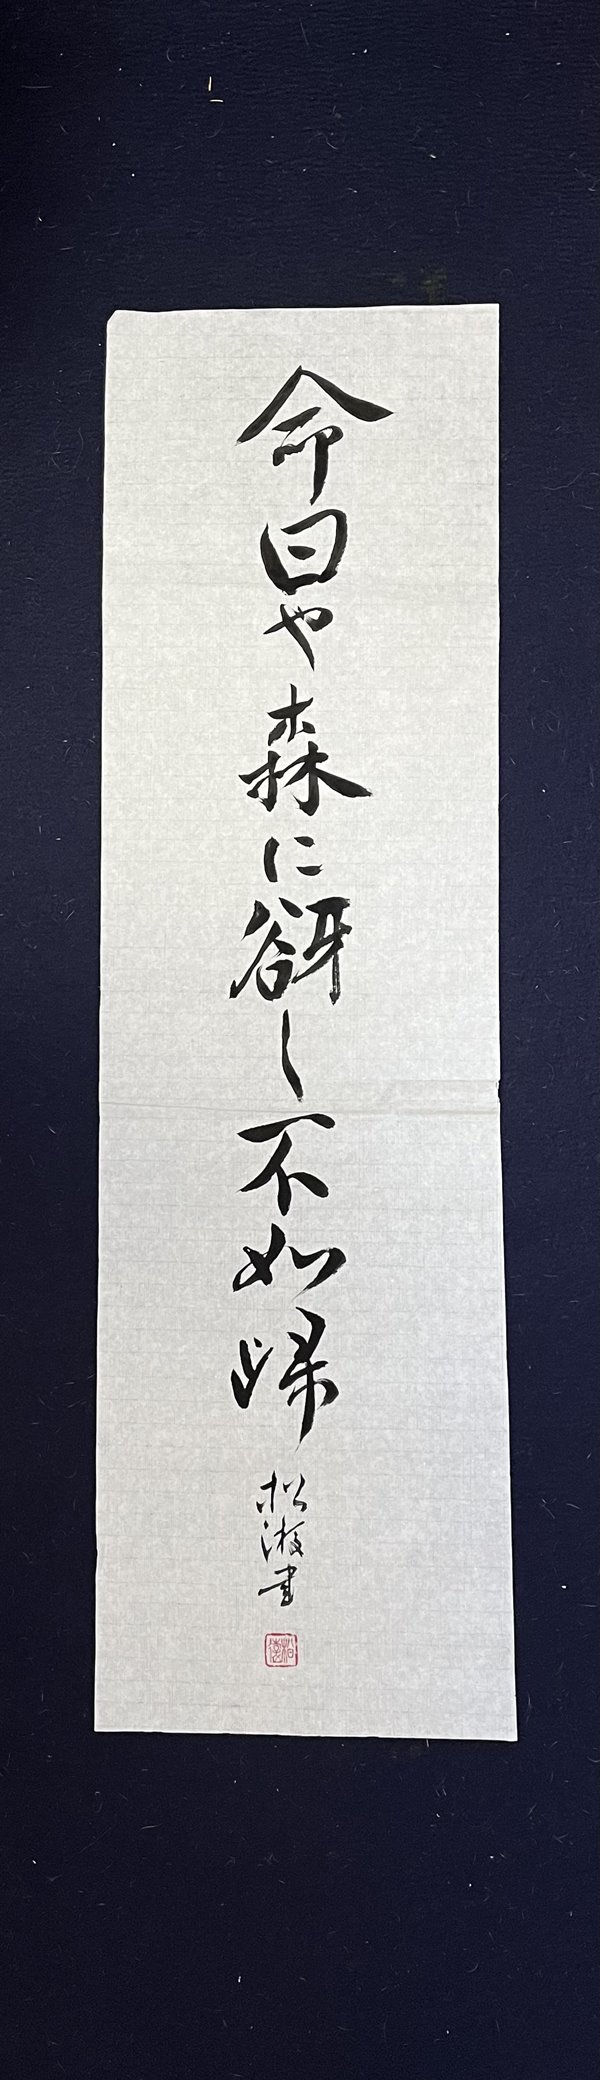 命日や森に谺し不如帰
松 書